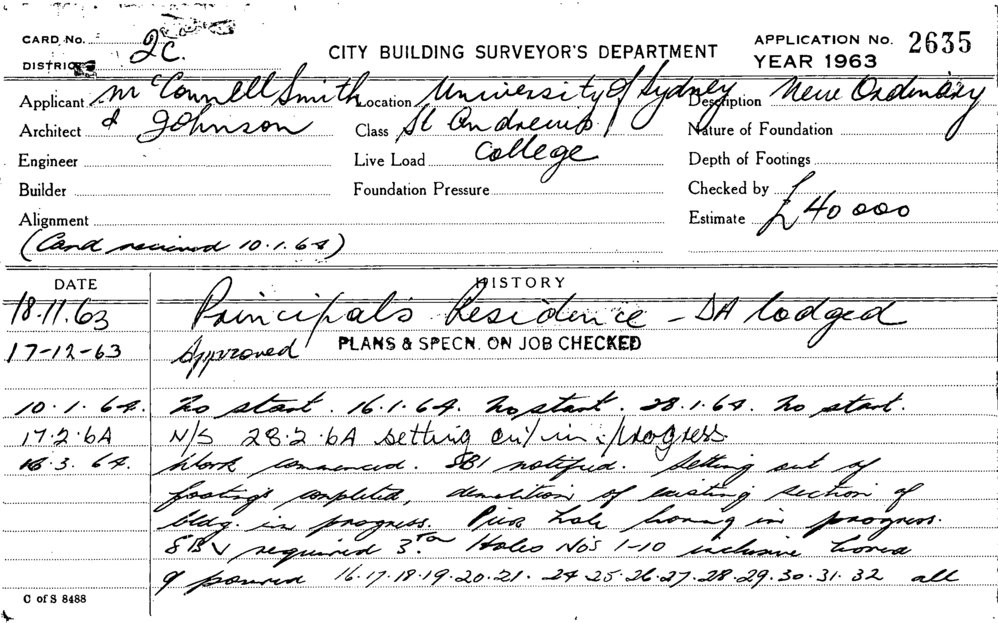 CARD No. 2c.
DISTRICT
CITY BUILDING SURVEYOR'S DEPARTMENT
APPLICATION No. 2635
YEAR 1963
Applicant McConnell Smith Location University of Sydney Description New Ordinary
Architect & Johnson Class St Andrews Nature of Foundation
Engineer Live Load College Depth of Footings
Builder Foundation Pressure Checked by
Alignment Estimate £40000
(Card received 10.1.64)
DATE HISTORY
18.11.63 Principal's Residence - DA lodged
17-12-63 Approved PLANS & SPECN. ON JOB CHECKED
10.1.64. No start. 16.1.64. No start. 28.1.64. No start.
17.2.64 N/S 28.2.64 setting out in progress.
16.3.64. Work commenced. SBI notified. Setting out of
footings completed, demolition of existing section of
bldg. in progress. Pier hole boring in progress.
required Holes No's 1-10 inclusive bored
& poured 16.17.18.19.20.21. 24.25.26.27.28.29.30.31.32 all
C of S 8488